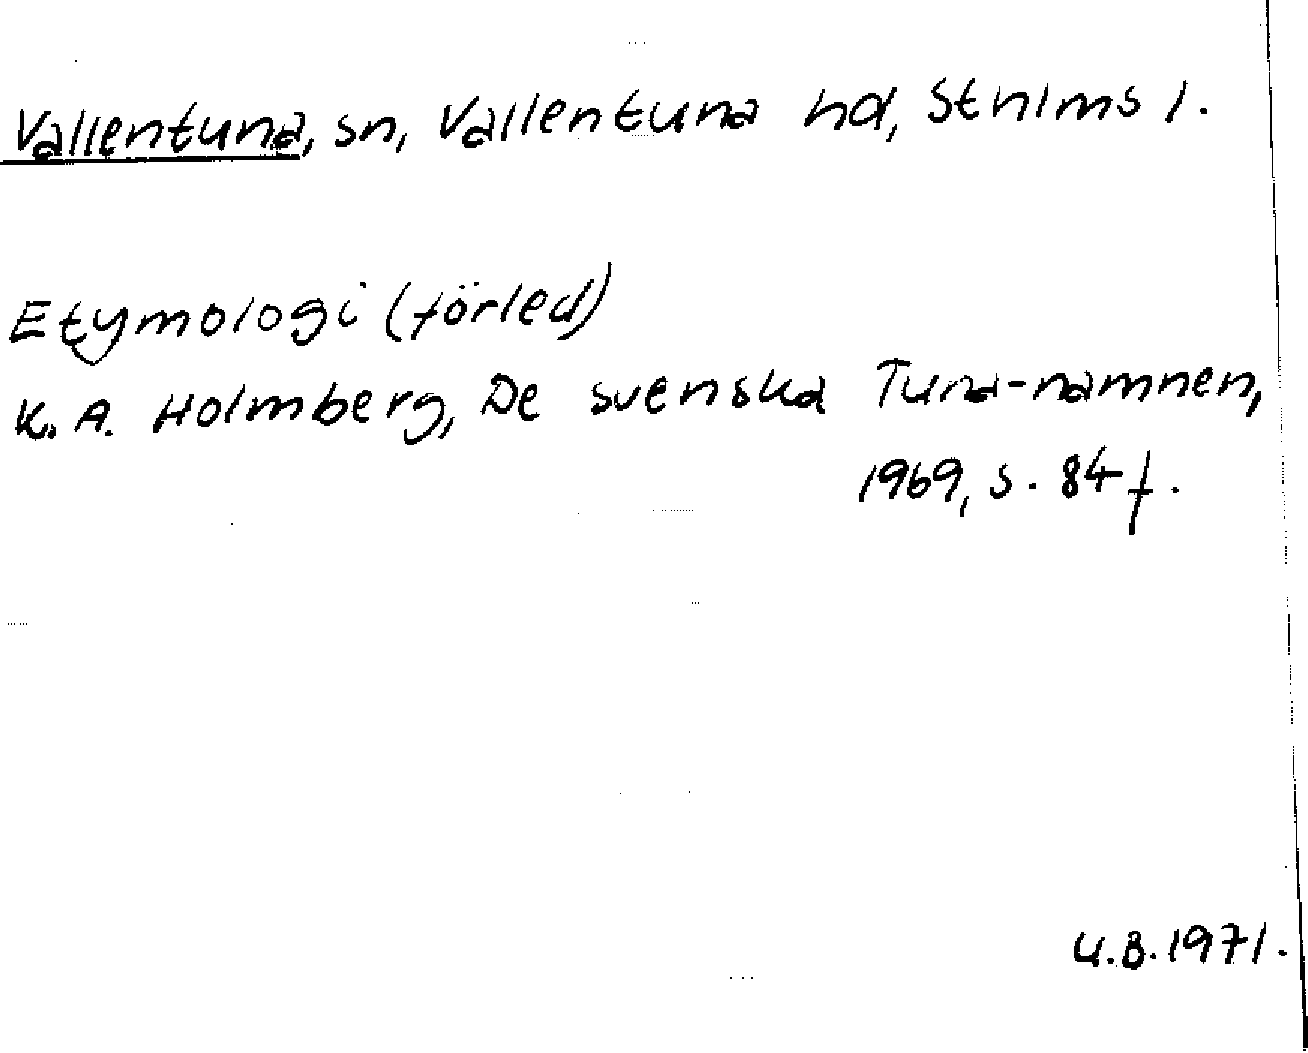 Vallentuna, sn, Vallentuna hd, Sthlms l.
Etymologi (förled)
K. A. Holmberg, De svenska Tuna-namnen,
1969, s. 84 f.
U.B. 1971.